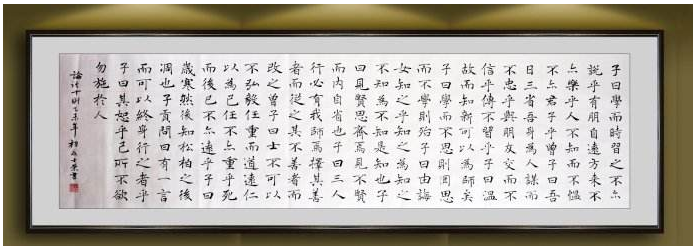 子曰學而時習之不亦
說乎有朋自遠方來不
亦樂乎人不知而不慍
不亦君子乎曾子曰吾
日三省吾身為人謀而
不忠乎與朋友交而不
信乎傳不習乎子曰溫
故而知新可以為師矣
子曰學而不思則罔思
而不學則殆子曰由誨
女知之乎知之為知之
不知為不知是知也子
曰見賢思齊焉見不賢
而內自省也子曰三人
行必有我師焉擇其善
者而從之其不善者而
改之曾子曰士不可以
不弘毅任重而道遠仁
以為己任不亦重乎死
而後已不亦遠乎子曰
歲寒然後知松柏之後
凋也子貢問曰有一言
而可以終身行之者乎
子曰其恕乎己所不欲
勿施於人
論語十則乙未年初夏書